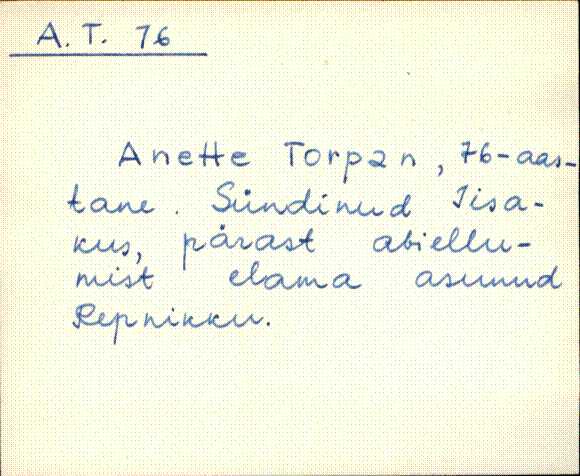 A. T. 76
Anette Torpan, 76-aas-
tane. Sündinud Iisa-
kus, pärast abiellu-
mist elama asunud
Repnikku.